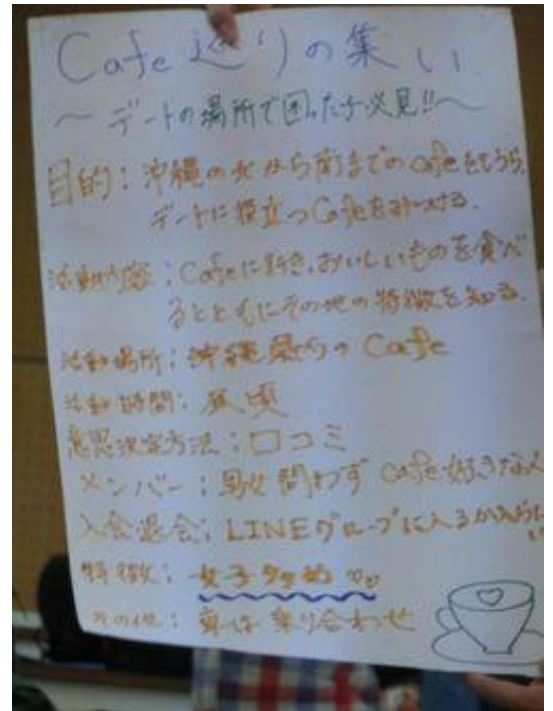 Cafe 巡りの集い
～デートの場所で困った子必見!!～
目的：沖縄の北から南までのcafeをもうら。
デートに役立つCafeをみつける。
活動内容：Cafeに行き、おいしいものを食べ
るとともにその地の特徴を知る。
活動場所：沖縄県内のCafe
活動時間：昼頃
意思決定方法：口コミ
メンバー：男女問わずcafe好きな人
入会退会：LINEグループに入るか
特徴：女子多め♡♡
その他：車は乗り合わせ